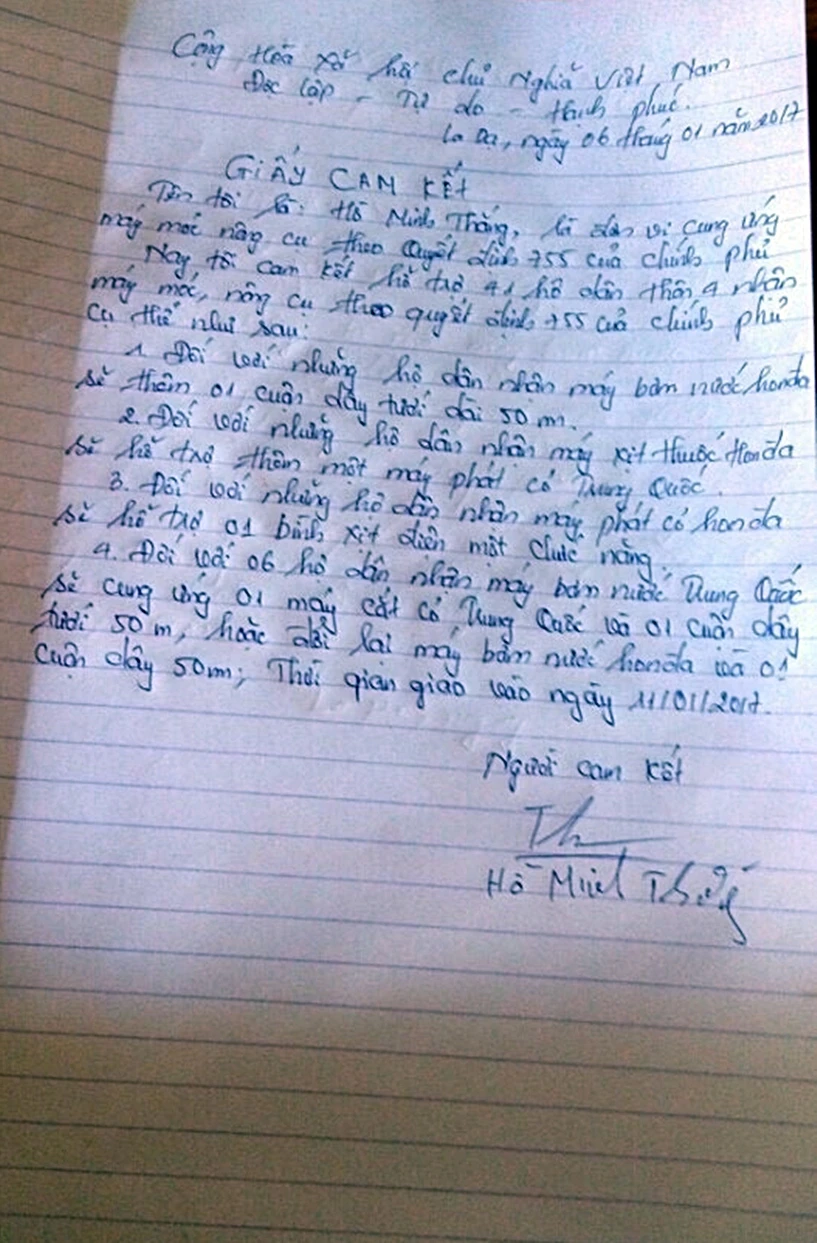 Cộng Hòa Xã hội chủ Nghĩa Việt Nam
Độc lập - Tự do - Hạnh phúc.
La Dạ, ngày 06 tháng 01 năm 2017
GIẤY CAM KẾT
Tên tôi là: Hồ Minh Thắng, là đơn vị cung ứng
máy móc nông cụ theo Quyết định 755 của chính phủ
Nay tôi cam kết hỗ trợ 41 hộ dân thôn 4 nhân
máy móc, nông cụ theo quyết định 755 của chính phủ
cụ thể như sau:
1. Đối với những hộ dân nhận máy bơm nước honda
sẽ thêm 01 cuộn dây tưới dài 50 m.
2. Đối với những hộ dân nhận máy xịt thuốc Honda
sẽ hỗ trợ thêm một máy phát cỏ Trung Quốc.
3. Đối với những hộ dân nhận máy phát cỏ honda
sẽ hỗ trợ 01 bình xịt điện một chức năng.
4. Đối với 06 hộ dân nhận máy bơm nước Trung Quốc
sẽ cung ứng 01 máy cắt cỏ Trung Quốc và 01 cuộn dây
tưới 50 m, hoặc đổi lại máy bơm nước honda và 01
cuộn dây 50m; Thời gian giao vào ngày 11/01/2017.
Người cam kết
Th
Hồ Minh Thắng